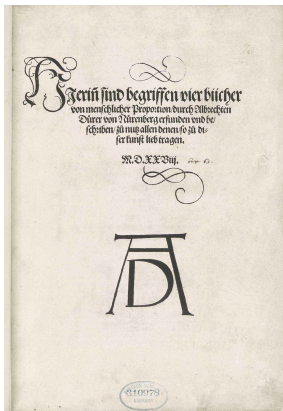 Hjeriñ sind begriffen vier bücher
von menschlicher Proportion/durch Albrechten
Dürer von Nürenberg erfunden vnd be/
schriben/zů nutz allen denen/so zů di-
ser kunst lieb tragen.
M.D.XXViij.
AD
310978